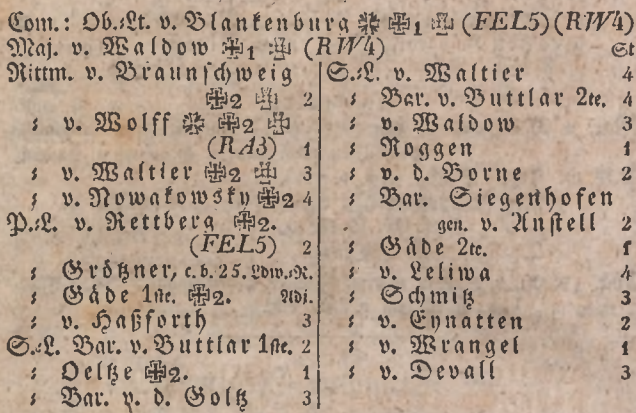 Com.: Ob.⸗Lt. v. Blankenburg ✠ ✠1 ✠ (FEL5) (RW4)
Maj. v. Waldow ✠1 ✠ (RW4)
Rittm. v. Braunschweig
✠2 ✠ 2
⸗ v. Wolff ✠ ✠2 ✠
(RA3) 1
⸗ v. Waltier ✠2 ✠ 3
⸗ v. Nowakowsky ✠2 4
P.⸗L. v. Rettberg ✠2.
(FEL5) 2
⸗ Größner, c. b. 25. Ldw.⸗R.
⸗ Gäde 1ste. ✠2. Adj.
⸗ v. Haßforth 3
S.⸗L. Bar. v. Buttlar 1ste. 2
⸗ Oeltze ✠2. 1
⸗ Bar. v. d. Goltz 3
St
S.⸗L. v. Waltier 4
⸗ Bar. v. Buttlar 2te. 4
⸗ v. Waldow 3
⸗ Roggen 1
⸗ v. d. Borne 2
⸗ Bar. Siegenhofen
gen. v. Anstell 2
⸗ Gäde 2te. 1
⸗ v. Leliwa 4
⸗ Schmitz 3
⸗ v. Eynatten 2
⸗ v. Wrangel 1
⸗ v. Devall 3